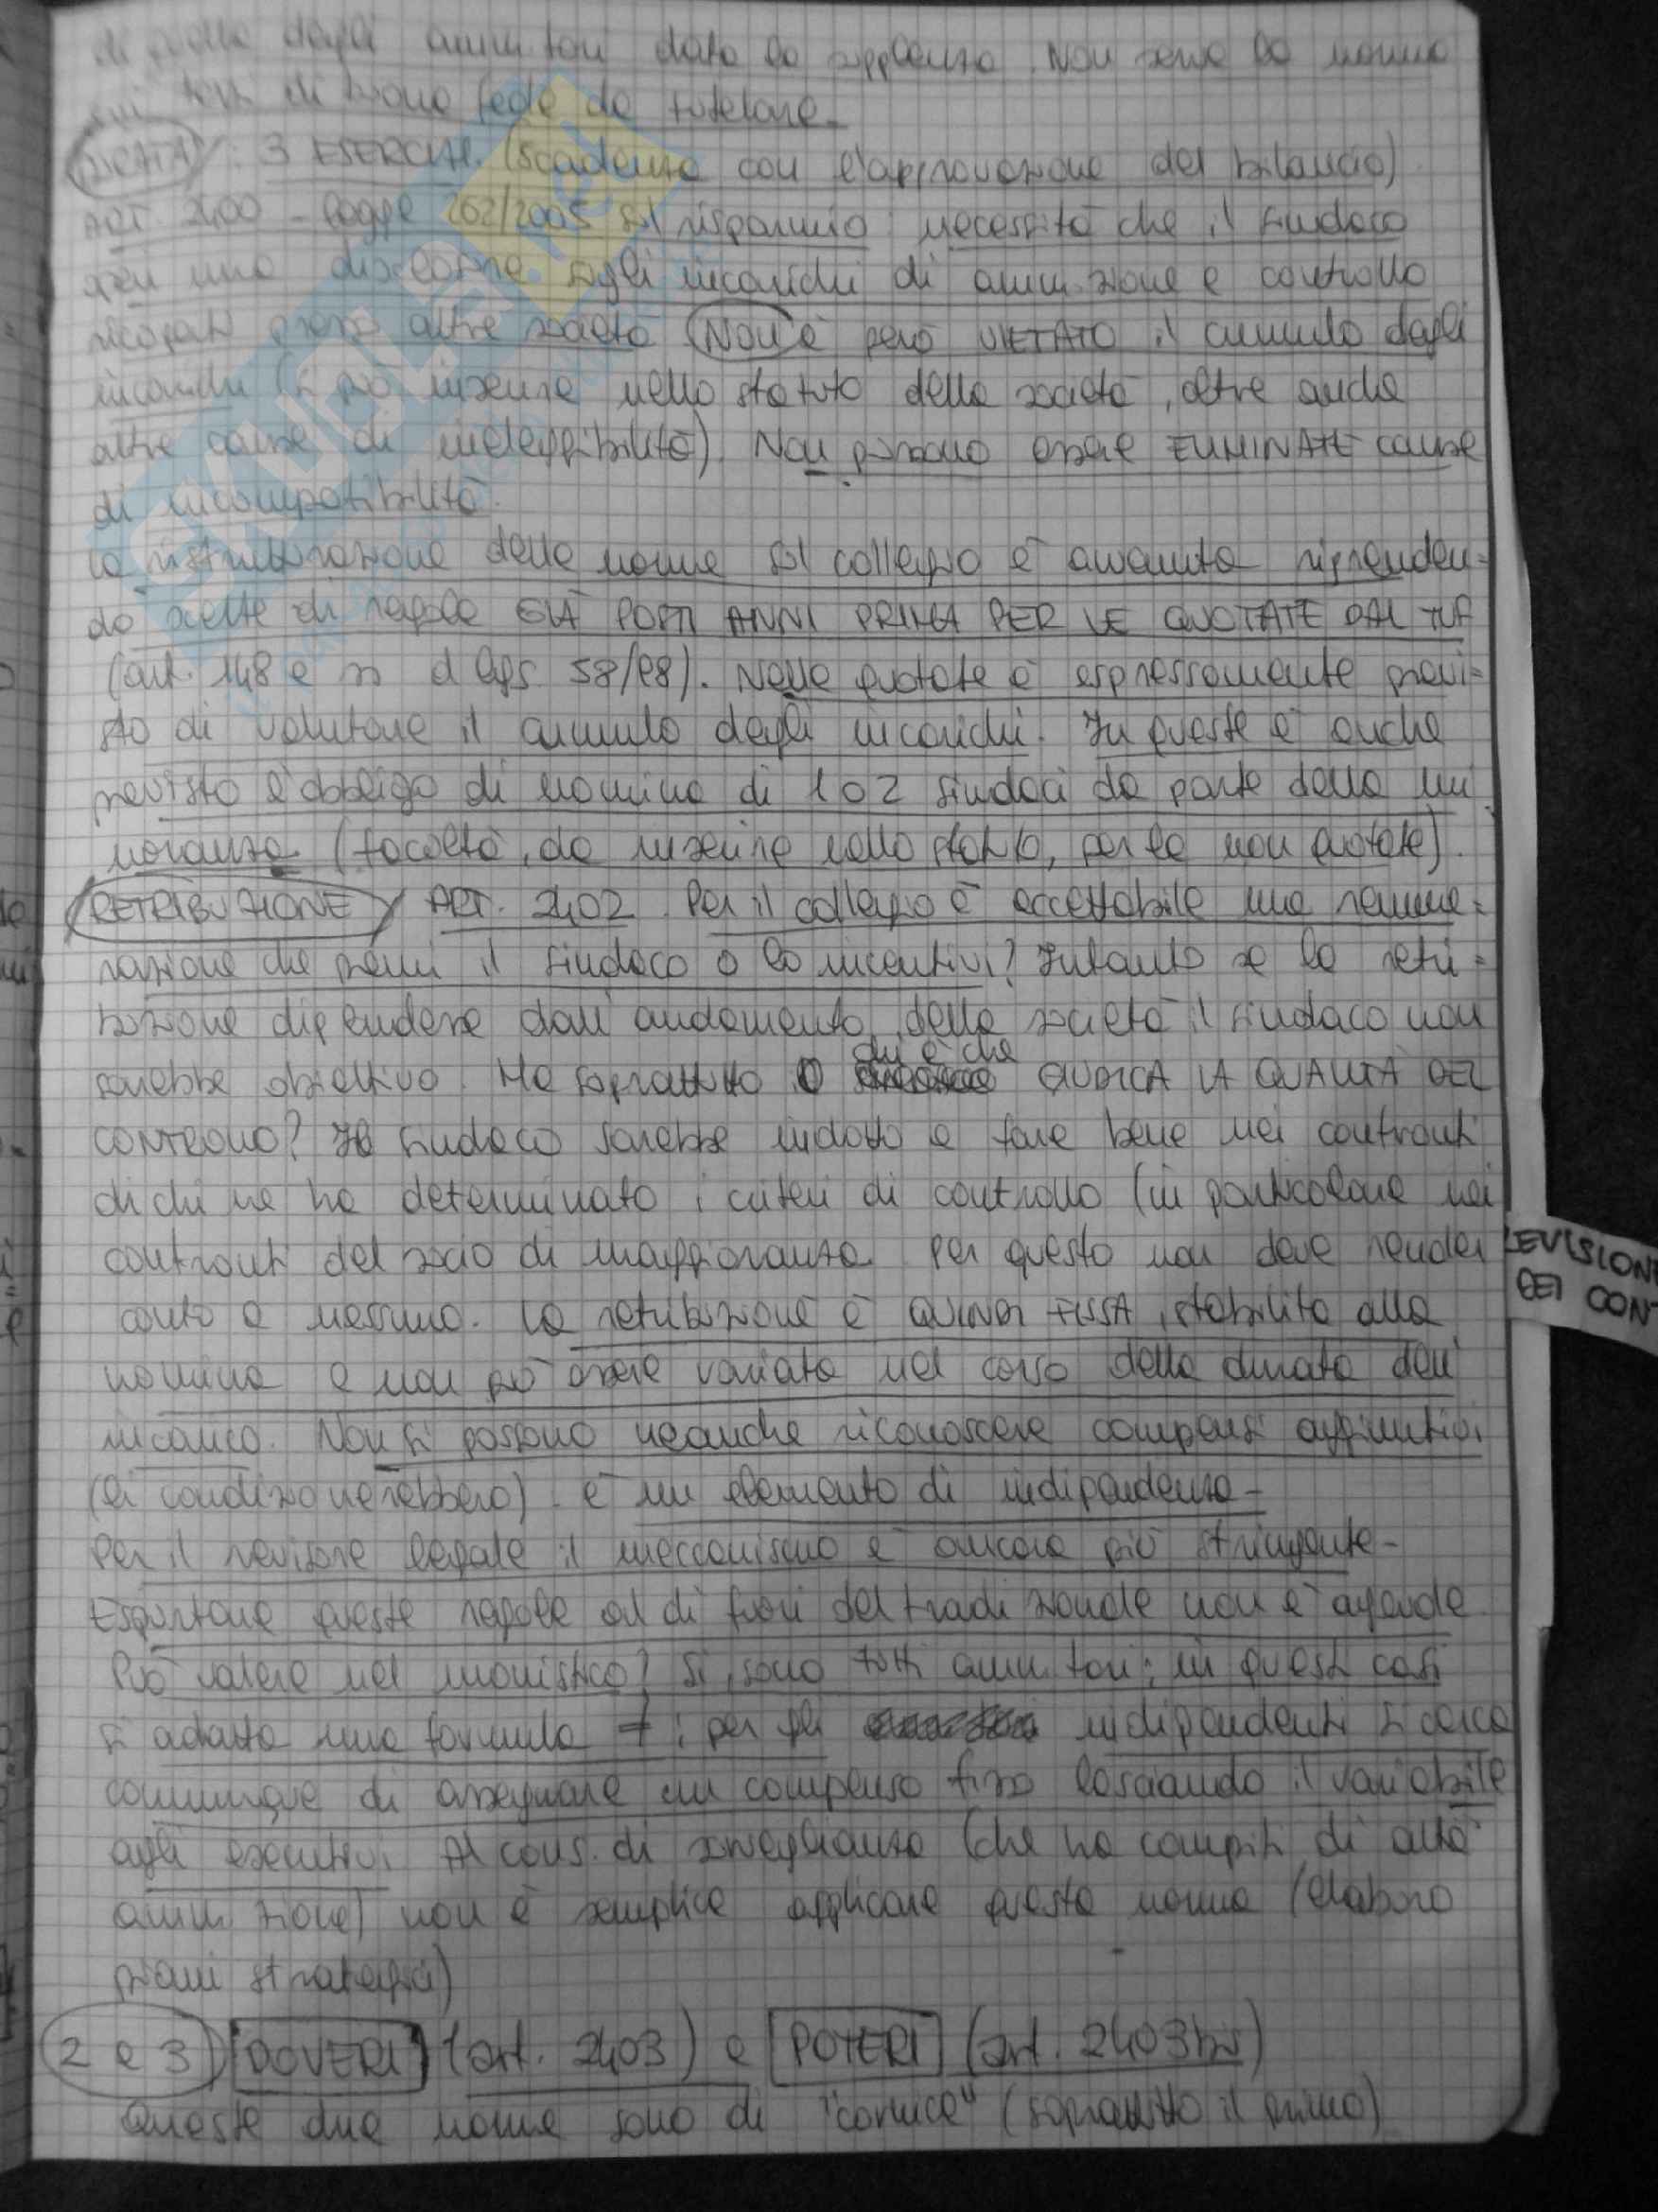 di quella degli amm.tori data la supplenza. Non serve la norma
sui terzi di buona fede da tutelare.
DURATA: 3 ESERCIZI. (scadenza con l'approvazione del bilancio)
ART. 2400 - legge 262/2005 sul risparmio: necessità che il sindaco
una disclosure sugli incarichi di amm.zione e controllo
ricoperti presso altre società. Non è però VIETATO il cumulo degli
incarichi (si può inserire nello statuto della società, oltre anche
altre cause di ineleggibilità). Non possono essere ELIMINATE cause
di incompatibilità.
La ristrutturazione delle norme sul collegio è avvenuta riprenden=
do scelte di regole GIÀ POSTI ANNI PRIMA PER LE QUOTATE DAL TUF
(art. 148 e ss d.lgs. 58/98). Nelle quotate è espressamente previ=
sto di valutare il cumulo degli incarichi. In queste è anche
previsto l'obbligo di nomina di 1 o 2 sindaci da parte della mi
noranza (facoltà, da inserire nello statuto, per le non quotate).
RETRIBUZIONE ART. 2402. Per il collegio è accettabile una remune=
razione che premi il sindaco o lo incentivi? Intanto se la retri=
buzione dipendesse dall'andamento della società il sindaco non
sarebbe obiettivo. Ma soprattutto chi è che GIUDICA LA QUALITÀ DEL
CONTROLLO? Il sindaco sarebbe indotto a fare bene nei confronti
di chi ne ha determinato i criteri di controllo (in particolare nei
confronti del socio di maggioranza. Per questo non deve render
conto a nessuno. La retribuzione è QUINDI FISSA, stabilita alla
nomina e non può essere variata nel corso della durata dell'
incarico. Non si possono neanche riconoscere compensi aggiuntivi
(li condizionerebbero). è un elemento di indipendenza-
Per il revisore legale il meccanismo è ancora più stringente-
Esportare queste regole al di fuori del tradizionale non è agevole.
Può valere nel monistico? Sì, sono tutti amm.tori; in questi casi
si adatta una formula ≠: per gli indipendenti si cerca
comunque di assegnare un compenso fisso lasciando il variabile
agli esecutivi. Al cons. di sorveglianza (che ha compiti di alta
amm.zione) non è semplice applicare questa norma (elabora
piani strategici)
2 e 3) [DOVERI] (art. 2403) e [POTERI] (art. 2403bis)
Queste due norme sono di "cornice" (soprattutto il primo)
REVISIONE
DEI CONT